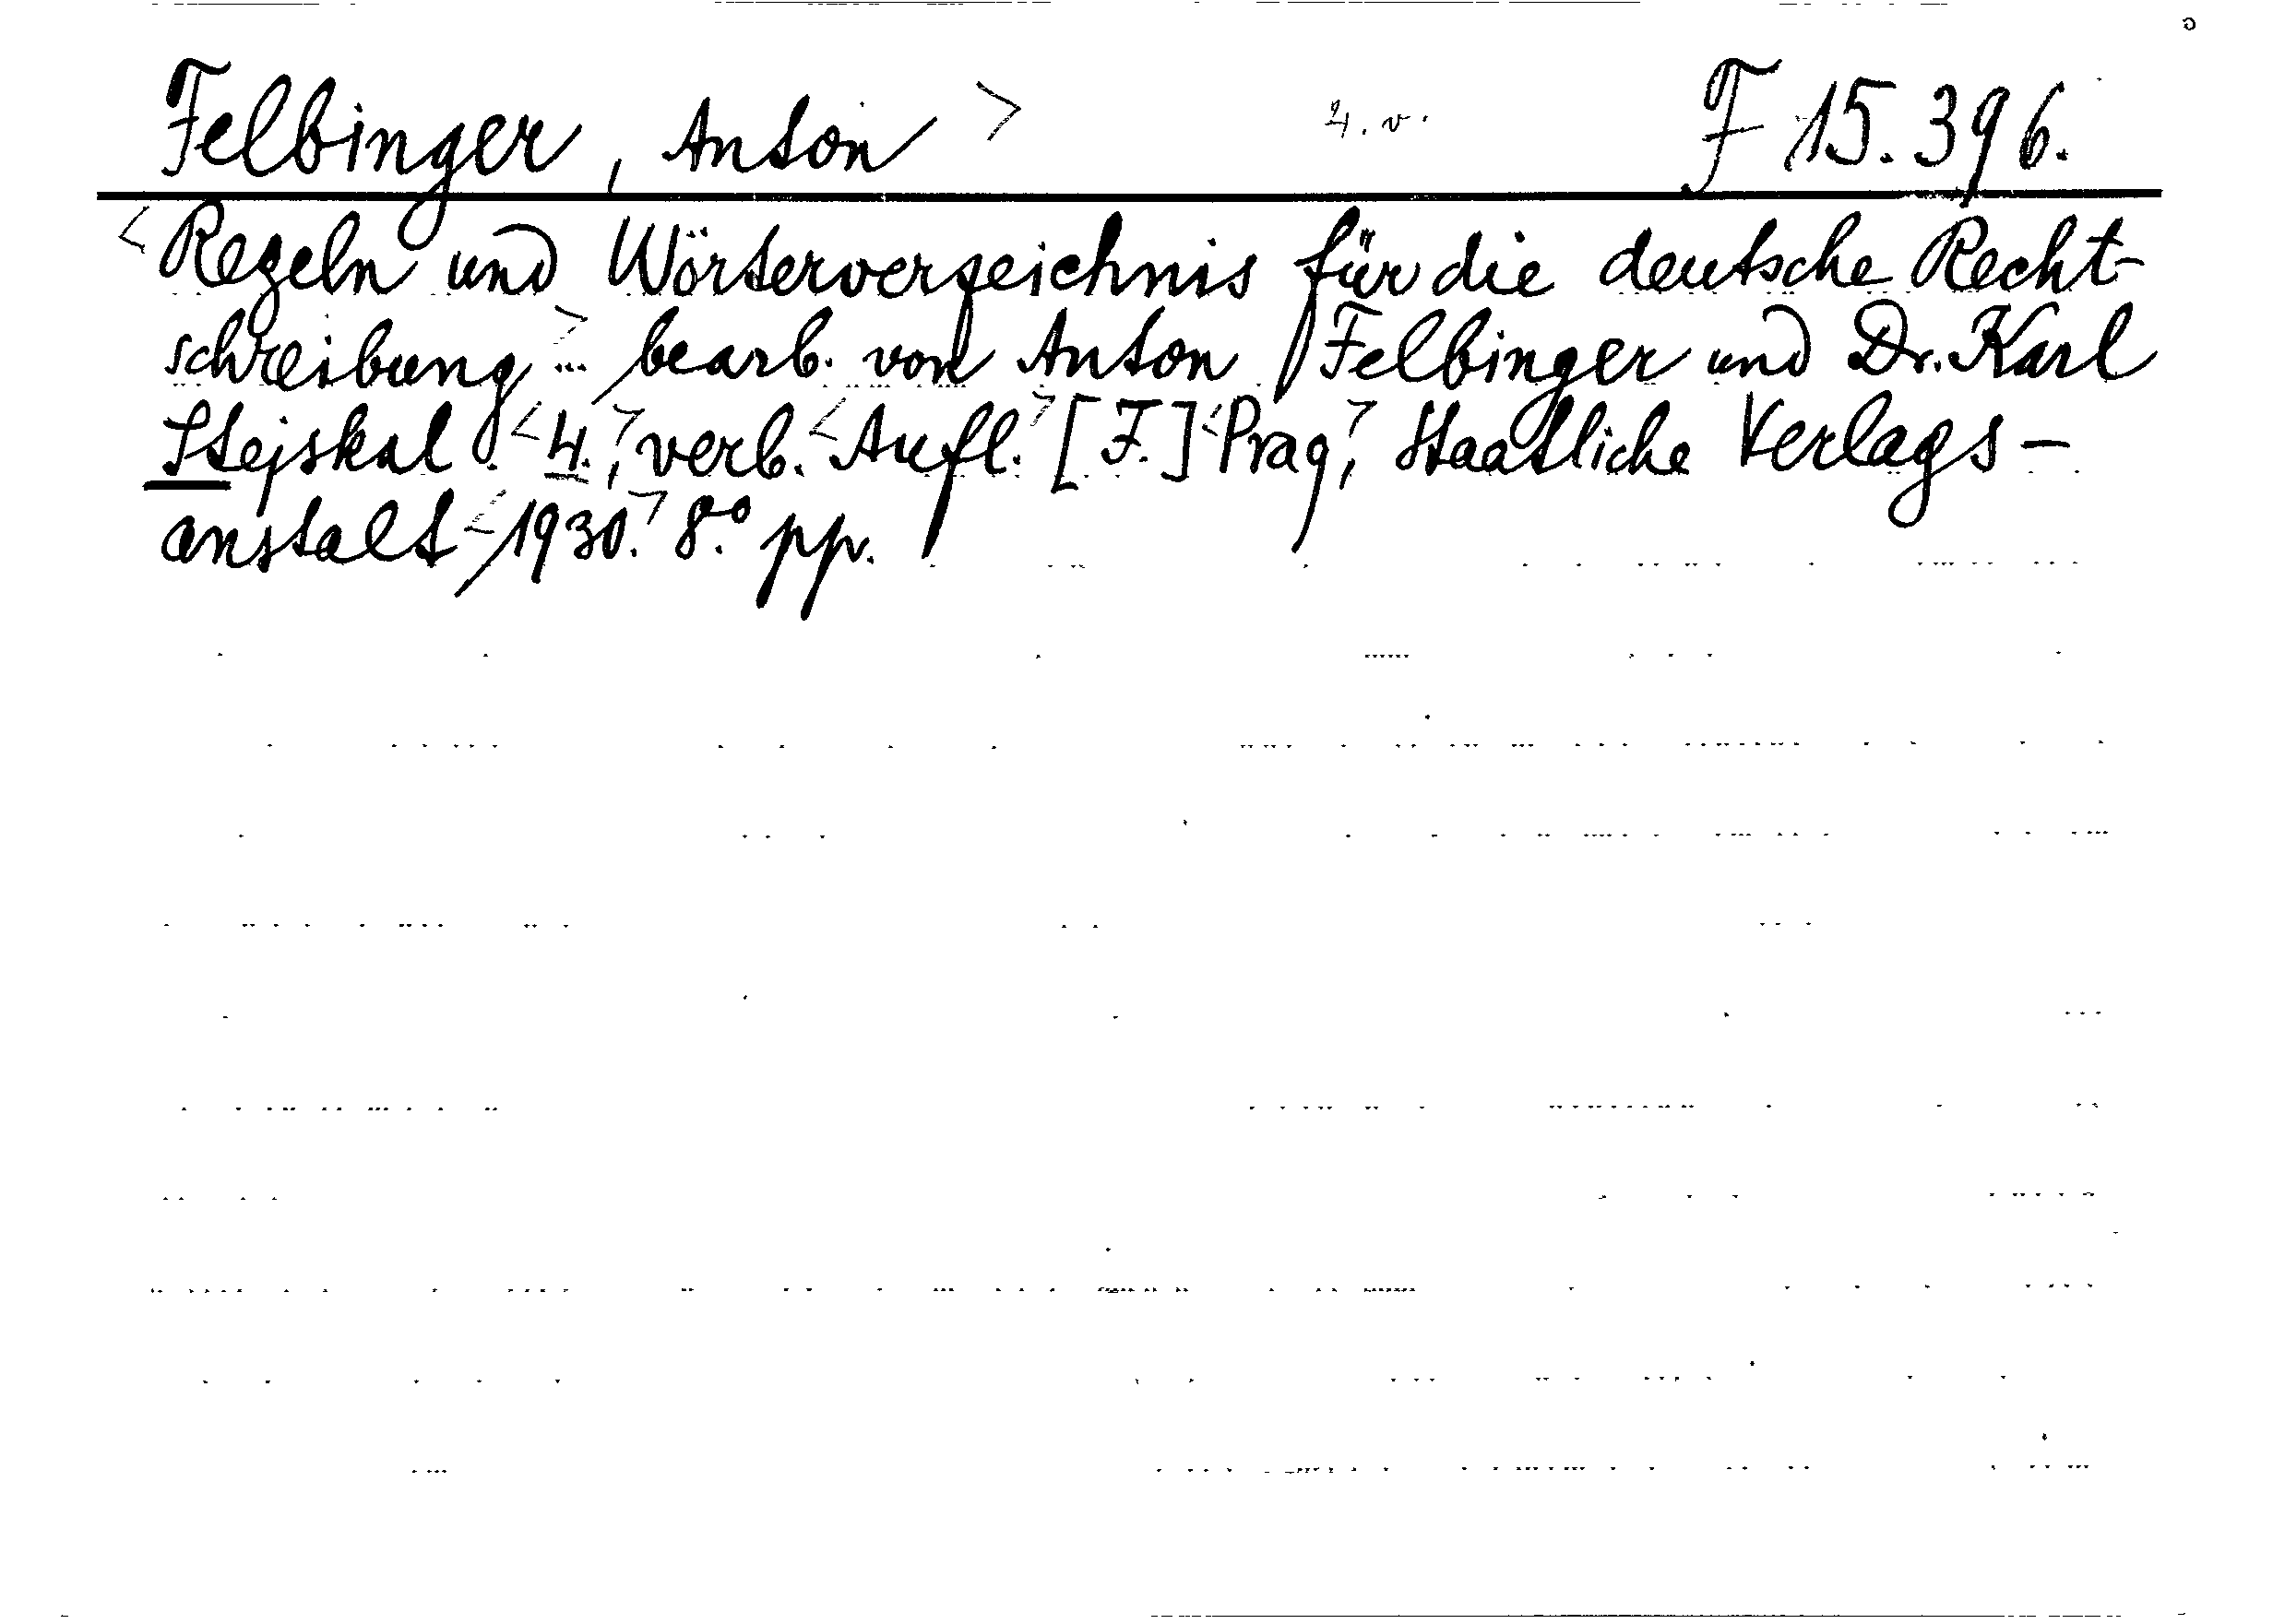 Felbinger, Anton > 4. v. F 15.396.
<Regeln und Wörterverzeichnis für die deutsche Recht-
schreibung> ... bearb. von Anton Felbinger und Dr. Karl
Stejskal. <4.,> verb. <Aufl.> [F.] <Prag,> Staatliche Verlags-
anstalt <1930.> 8.° pp.